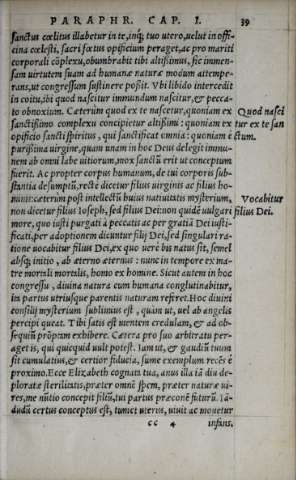 PARAPHR. CAP. I. 39
sanctus cœlitus illabetur in te, inq; tuo utero, uelut in offi-
cina cœlesti, sacri fœtus opificium peraget, ac pro mariti
corporali cõplexu, obumbrabit tibi altißimus, sic immen-
sam uirtutem suam ad humanæ naturæ modum attempe-
rans, ut congressum sustinere poßit. Vbi libido intercedit
in coitu, ibi quod nascitur immundum nascitur, & pecca-
to obnoxium. Cæterum quod ex te nascetur, quoniam ex
sanctißimo complexu concipietur altißimi: quoniam ex
opificio sancti spiritus, qui sanctificat omnia: quoniam è
purißima uirgine, quam unam in hoc Deus delegit immu-
nem ab omni labe uitiorum, mox sanctũ erit ut conceptum
fuerit. Ac propter corpus humanum, de tui corporis sub-
stantia desumptũ, rectè dicetur filius uirginis ac filius ho-
minis: cæterùm post intellectũ huius natiuitatis mysterium,
non dicetur filius Ioseph, sed filius Dei: non quidẽ uulgari
more, quo iusti purgati à peccatis ac per gratiã Dei iusti-
ficati, per adoptionem dicuntur filij Dei, sed singulari ra-
tione uocabitur filius Dei, ex quo uerè bis natus sit, semel
absq; initio, ab æterno æternus: nunc in tempore ex ma-
tre mortali mortalis, homo ex homine. Sicut autem in hoc
congressu, diuina natura cum humana conglutinabitur,
ita partus utriusque parentis naturam referet. Hoc diuini
consilij mysterium sublimius est, quàm ut, uel ab angelis
percipi queat. Tibi satis est mentem credulam, & ad ob-
sequiũ prõpram exhibere. Cætera pro suo arbitratu per-
aget is, qui quicquid uult potest. Iam ut, & gaudiũ tuum
sit cumulatius, & certior fiducia, sume exemplum recẽs è
proximo. Ecce Elizabeth cognata tua, anus illa iã diu de-
ploratæ sterilitatis, præter omnẽ spem, præter naturæ ui-
res, me nũtio concepit filiũ, tui partus præconẽ futurũ. Iã-
dudũ certus conceptus est, tumet uterus, uiuit ac mouetur
cc 4 infans,
Quod nasci
tur ex te san
ctum.
Vocabitur
filius Dei.